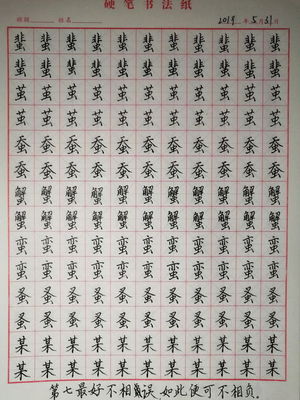 硬笔书法纸
班级 姓名 2019年5月31日
蜚蜚蜚蜚蜚蜚蜚蜚蜚蜚蜚
蜚蜚蜚蜚蜚蜚蜚蜚蜚蜚蜚
茧茧茧茧茧茧茧茧茧茧茧
茧茧茧茧茧茧茧茧茧茧茧
蚕蚕蚕蚕蚕蚕蚕蚕蚕蚕蚕
蚕蚕蚕蚕蚕蚕蚕蚕蚕蚕蚕
蟹蟹蟹蟹蟹蟹蟹蟹蟹蟹蟹
蟹蟹蟹蟹蟹蟹蟹蟹蟹蟹蟹
蛮蛮蛮蛮蛮蛮蛮蛮蛮蛮蛮
蛮蛮蛮蛮蛮蛮蛮蛮蛮蛮蛮
蚤蚤蚤蚤蚤蚤蚤蚤蚤蚤蚤
蚤蚤蚤蚤蚤蚤蚤蚤蚤蚤蚤
某某某某某某某某某某某
某某某某某某某某某某某
第七最好不相误，如此便可不相负.